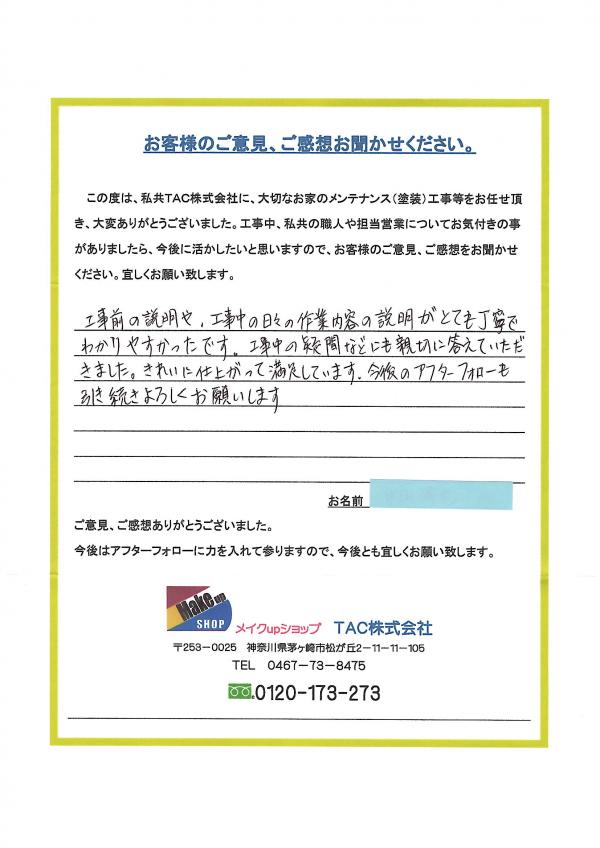 お客様のご意見、ご感想お聞かせください。
この度は、私共TAC株式会社に、大切なお家のメンテナンス(塗装)工事等をお任せ頂
き、大変ありがとうございました。工事中、私共の職人や担当営業についてお気付きの事
がありましたら、今後に活かしたいと思いますので、お客様のご意見、ご感想をお聞かせ
ください。宜しくお願い致します。
工事前の説明や、工事中の日々の作業内容の説明がとても丁寧で
わかりやすかったです。工事中の疑問などにも親切に答えていただ
きました。きれいに仕上がって満足しています。今後のアフターフォローも
引き続きよろしくお願いします
お名前
ご意見、ご感想ありがとうございました。
今後はアフターフォローに力を入れて参りますので、今後とも宜しくお願い致します。
Make up
SHOP
メイクupショップ TAC株式会社
〒253-0025 神奈川県茅ヶ崎市松が丘2-11-11-105
TEL 0467-73-8475
0120-173-273